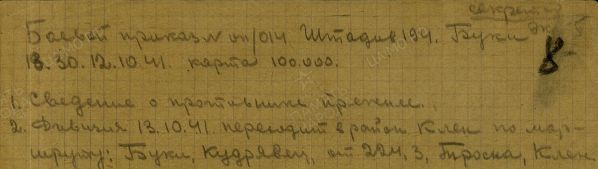 секретно
Боевой приказ № оп/014 Штадив 194. Буки
13.30. 12.10.41. карта 100.000.
8
1. Сведение о противнике прежнее.
2. Дивизия 13.10.41. переходит в район Клен по мар-
шруту: Буки, Кудрявец, от 224,3, Тросна, Клен